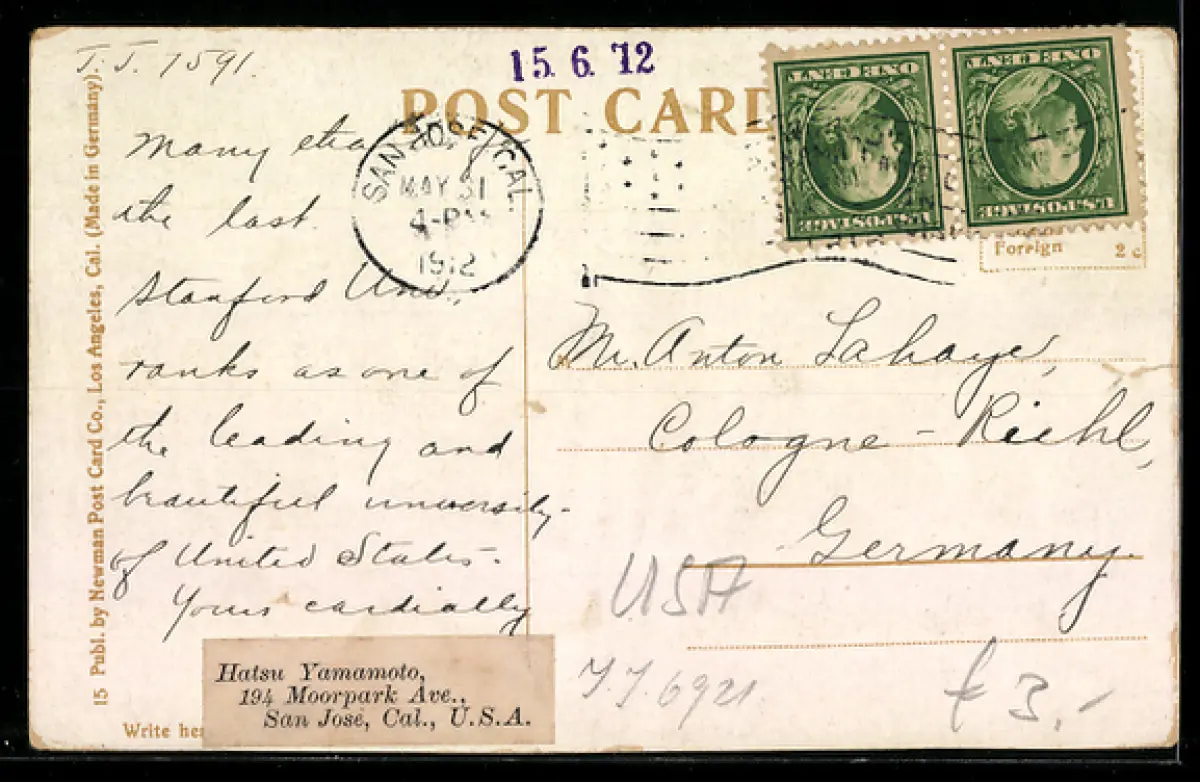 T. J. 7591.
15. 6. 12
POST CARD
ONE CENT
ONE CENT
U.S. POSTAGE
U.S. POSTAGE
SAN JOSE, CAL.
MAY 31
4-PM
1912
Foreign 2 c.
Many
the last.
Stanford Uni.,
ranks as one of
the leading and
beautiful university-
of United States-
Yours cordially
Mr. Anton Lahaye,
Cologne - Riehl,
Germany.
USA
J. J. 6921
3.-
Hatsu Yamamoto,
194 Moorpark Ave.,
San José, Cal., U.S.A.
Write her
15 Publ. by Newman Post Card Co., Los Angeles, Cal. (Made in Germany).